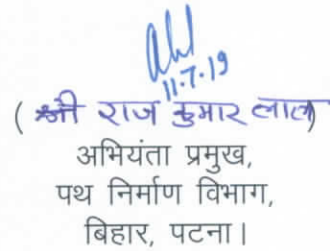 11.7.19
( श्री राज कुमार लाल)
अभियंता प्रमुख,
पथ निर्माण विभाग,
बिहार, पटना।